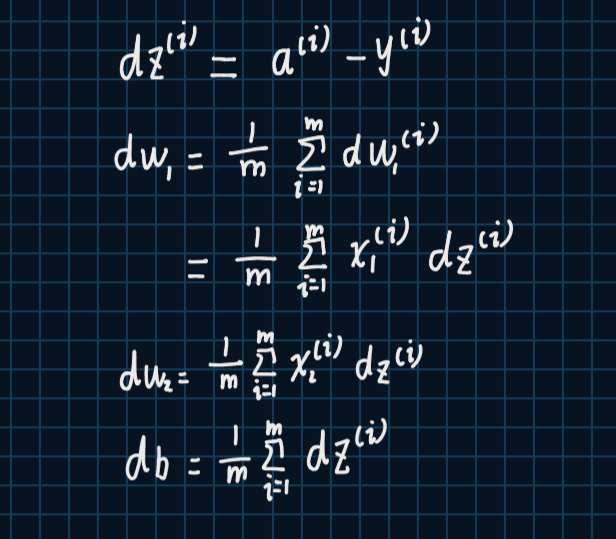 dz⁽ⁱ⁾ = a⁽ⁱ⁾ − y⁽ⁱ⁾
dw₁ = 1/m Σᵢ₌₁ᵐ dw₁⁽ⁱ⁾
= 1/m Σᵢ₌₁ᵐ x₁⁽ⁱ⁾ dz⁽ⁱ⁾
dw₂ = 1/m Σᵢ₌₁ᵐ x₂⁽ⁱ⁾ dz⁽ⁱ⁾
db = 1/m Σᵢ₌₁ᵐ dz⁽ⁱ⁾